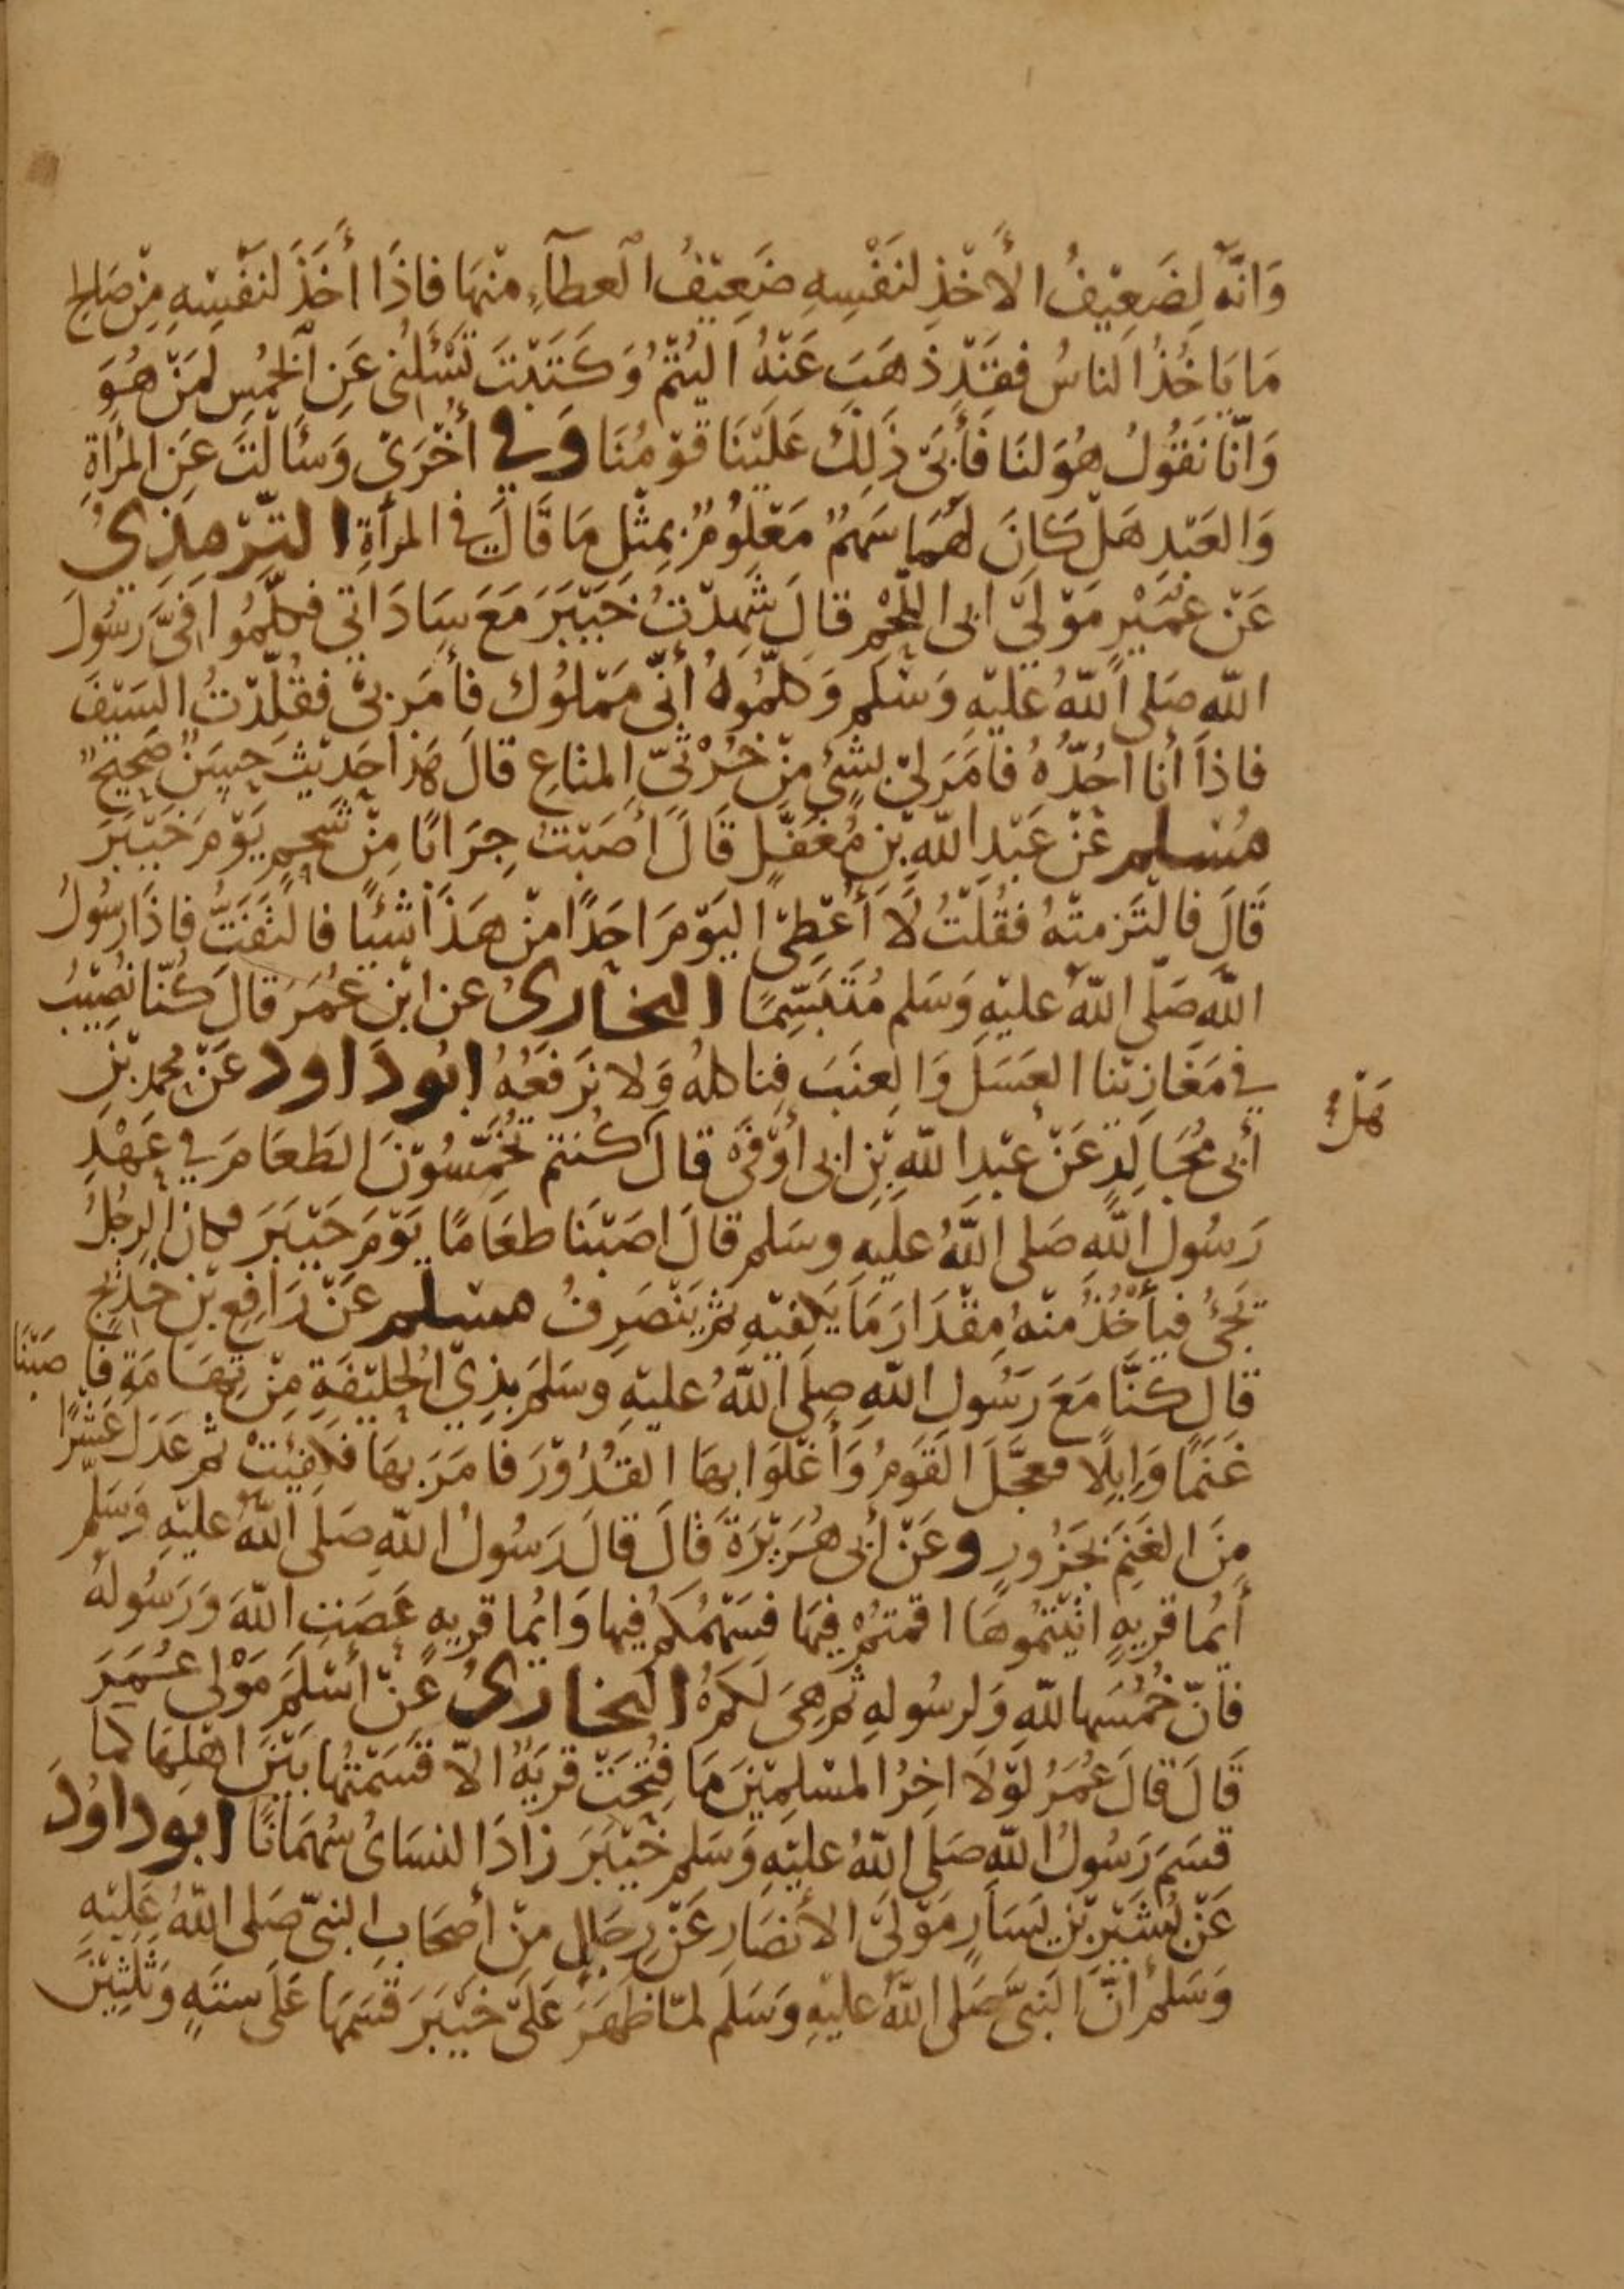 وَانَّهُ لضَعِيْفُ الأَخْذِ لنَفْسِهِ ضَعِيْفُ العطآءِ مِنْهَا فاِذَا أخَذَ لنَفْسِهِ مِنْ صَالِح
مَا يَاخُذُ الناسُ فقَدْ ذهَبَ عَنْهُ اليُتْمُ وَكَتَبْتَ تَسْئَلُنِى عَنِ الخُمُسِ لِمَنْ هُوَ
وَانّا نَقُولُ هُوَ لنَا فَأَبَىٰ ذَلِكَ عَلَيْنَا قَوْمُنَا وَفِي أُخْرَىٰ وَسَأَلْتَ عَنِ المرْأةِ
وَالعَبْدِ هَلْ كَانَ لَهُمَا سَهْمٌ مَعْلُومٌ بِمِثْلِ مَا قَالَ فِي المرأةِ التّرْمِذِيُ
عَنْ عُمَيْرٍ مَوْلَىٰ ابى اللَّحْمِ قالَ شَهِدْتُ خَيْبَرَ مَعَ سَادَاتِي فكلَّمُوا فِىَّ رَسُولَ
اللّهِ صَلى اللّهُ عَليْهِ وَسَلم وَكَلَّمُوهُ أنّى مَمْلُوك فأمَر بىْ فقُلِّدْتُ السَيْفَ
فاذَا أنا أجُرُّهُ فامَرَ لىْ بِشئٍ مِنْ خُرْثىّ المتَاعِ قالَ هَذا حَدِيْثٌ حَسَنٌ صَحِيْحٌ
مُسْلم عَنْ عَبْدِ اللّهِ بْنِ مُغَفَّلٍ قَالَ أصَبْتُ جِرَابًا مِنْ شَحْمٍ يَوْمَ خَيْبَرَ
قَالَ فالتَزمتْهُ فقُلْتُ لَا أُعْطِى اليَوْمَ احَدًا مِنْ هَذَا شَيْئًا فالتَفَتُّ فاذَا رسُولُ
اللّهِ صَلّى اللّهُ عليْهِ وَسَلم مُتَبَسِّمًا البخارىُ عن ابْنِ عُمَرَ قالَ كُنّا نُصِيْبُ
فِي مَغَازِيْنا العَسَلَ وَالعِنَبَ فناكلهُ وَلا نَرْفَعُهُ ابُودَاود عَنْ مُحمد بْنِ
أبى مُجَالِدٍ عَنْ عَبْدِ اللّهِ بْنِ ابى أوْفَىٰ قالَ كُنتم تُخَمِّسُوْنَ الطعَامَ فِي عَهْدِ
رَسُولِ اللّهِ صَلى اللّهُ عليْهِ وسَلم قالَ اصَبْنَا طعَامًا يَوْمَ خَيْبَرَ فكانَ الرجُلُ
يَجئُ فيأخُذُ مِنْهُ مِقْدَارَ مَا يَكفيْهِ ثمّ يَنْصَرِفُ مسْلم عَنْ رَافِعِ بْنِ خَدِيْجٍ
قالَ كُنَّا مَعَ رَسُولِ اللّهِ صَلى اللّهُ عليْهِ وسَلمَ بذِى الحُلَيْفَةِ مِنْ تِهَامَةِ فاصَبْنَا
غَنَمًا وَإبِلًا فعجَّلَ القَوْمُ وَأغْلَوَا بهَا القُدُوْرَ فامَرَ بهَا فكفِئتْ ثم عَدَلَ عَشْرًا
مِنَ الغَنَمِ بجَزُورٍ وعَنْ أبى هُرَيْرَةَ قالَ قالَ رَسُولُ اللّهِ صَلى اللّهُ عليْهِ وَسَلّم
أيُما قريهٍ اتيْتُمُوهَا اقمتُمْ فيهَا فسَهْمُكُم فيها وَايُما قريهٍ عَصَتِ اللّهَ وَرَسُولهُ
فانّ خُمُسَها للّهِ وَلرسُولهِ ثمّ هِىَ لكمْ البخارىُ عَنْ أسْلَمَ مَوْلى عُمَرَ
قَالَ قالَ عُمَرُ لوْلَا اخِرُ المسْلِميْنَ مَا فُتِحَتْ قريَةٌ الّا قَسَمْتُهَا بَيْنَ اهْلِهَا كَما
قسَمَ رَسُولُ اللّهِ صَلى اللّهُ عليْهِ وَسَلم خَيْبَرَ زادَ النسَائُ سُهمَانًا ابوداوُدَ
عَنْ بُشَيْرِ بْنِ يَسَارٍ مَوْلَىٰ الأنصَارِ عَنْ رِجَالٍ مِنْ أصحَابِ النبىّ صَلى اللّهُ عَليْهِ
وَسَلمْ انّ النَبىَّ صَلى اللّهُ عليْهِ وَسَلم لمّا ظهَرَ عَلىٰ خَيْبَرَ قسَمَهَا عَلى ستهٍ وَثلثيْنَ
هَلْ